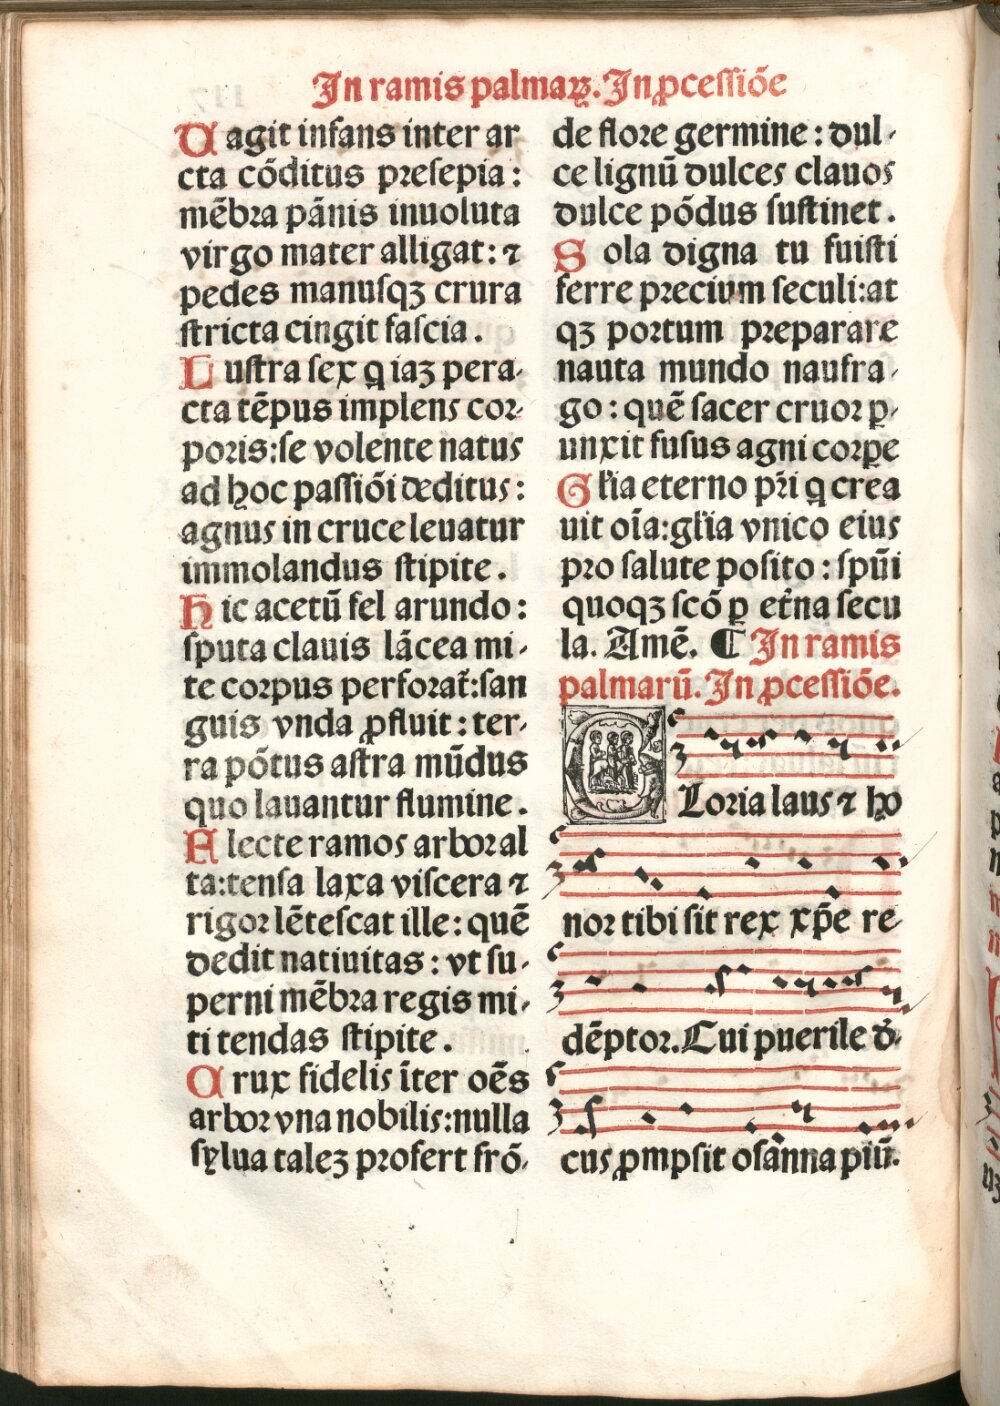 In ramis palmaꝝ. In ꝓcessiōe
Uagit infans inter ar
cta cōditus presepia:
mēbra pānis inuoluta
virgo mater alligat: ⁊
pedes manusqꝫ crura
stricta cingit fascia.
Lustra sex q iaꝫ pera-
cta tēpus implens cor-
poris: se volente natus
ad hoc passiōi deditus:
agnus in cruce leuatur
immolandus stipite.
Hic acetū fel arundo:
sputa clauis lācea mi-
te corpus perforat̄: san
guis vnda ꝓfluit: ter-
ra pōtus astra mūdus
quo lauantur flumine.
Flecte ramos arbor al
ta: tensa laxa viscera ⁊
rigor lētescat ille: quē
dedit natiuitas: vt su-
perni mēbra regis mi-
ti tendas stipite.
Crux fidelis īter oēs
arbor vna nobilis: nulla
sylua taleꝫ profert frō-
de flore germine: dul-
ce lignū dulces clauos
dulce pōdus sustinet.
Sola digna tu fuisti
ferre precium seculi: at
qꝫ portum preparare
nauta mundo naufra-
go: quē sacer cruor ꝑ-
unxit fusus agni corꝑe
Gl'ia eterno pr̄i q crea
uit oīa: gl'ia vnico eius
pro salute posito: spūi
quoqꝫ scō ꝑ et̄na secu
la. Amē. ¶ In ramis
palmarū. In ꝓcessiōe.
GLoria laus ⁊ ho
nor tibi sit rex xp̄e re-
dēptor. Cui puerile d̄-
cus ꝓmpsit osānna piū.